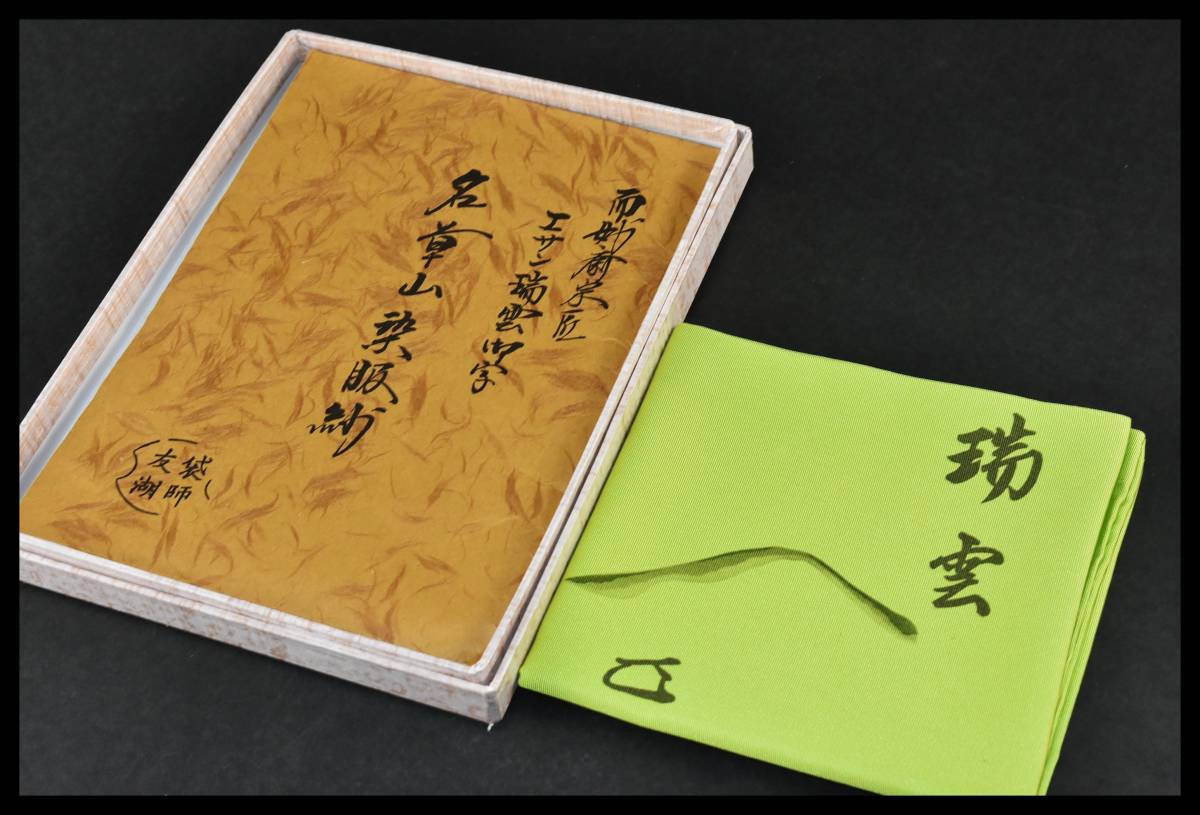 而妙斎宗匠
エサン瑞雲御字
名草山染服紗
袋師
友湖
瑞
雲